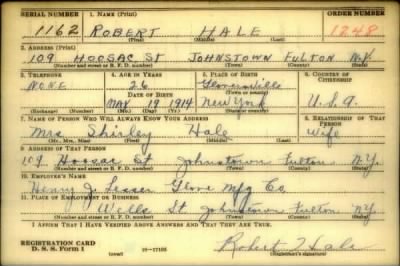 SERIAL NUMBER 1. NAME (Print) ORDER NUMBER
1162 ROBERT HALE 1248
(First) (Middle) (Last)
2. ADDRESS (Print)
109 HOOSAC ST JOHNSTOWN FULTON N.Y.
(Number and street or R. F. D. number) (Town) (County) (State)
3. TELEPHONE 4. AGE IN YEARS 5. PLACE OF BIRTH 6. COUNTRY OF CITIZENSHIP
NONE 26 Gloversville
(Town or county)
DATE OF BIRTH
MAY 19 1914 New York U.S.A.
(Exchange) (Number) (Mo.) (Day) (Yr.) (State or country)
7. NAME OF PERSON WHO WILL ALWAYS KNOW YOUR ADDRESS 8. RELATIONSHIP OF THAT PERSON
Mrs Shirley Hale Wife
(Mr., Mrs., Miss) (First) (Middle) (Last)
9. ADDRESS OF THAT PERSON
109 Hoosac St Johnstown Fulton N.Y.
(Number and street or R. F. D. number) (Town) (County) (State)
10. EMPLOYER'S NAME
Henry J. Lesser Glove Mfg Co.
11. PLACE OF EMPLOYMENT OR BUSINESS
Wells St Johnstown Fulton NY
(Number and street or R. F. D. number) (Town) (County) (State)
I AFFIRM THAT I HAVE VERIFIED ABOVE ANSWERS AND THAT THEY ARE TRUE.
REGISTRATION CARD
D. S. S. Form 1 (over) 16-17105 Robert Hale
(Registrant's signature)